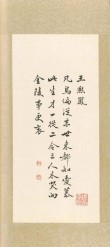 王熙鳳
凡鳥偏從末世來都知愛慕
此生才一從二令三人木哭向
金陵事更哀